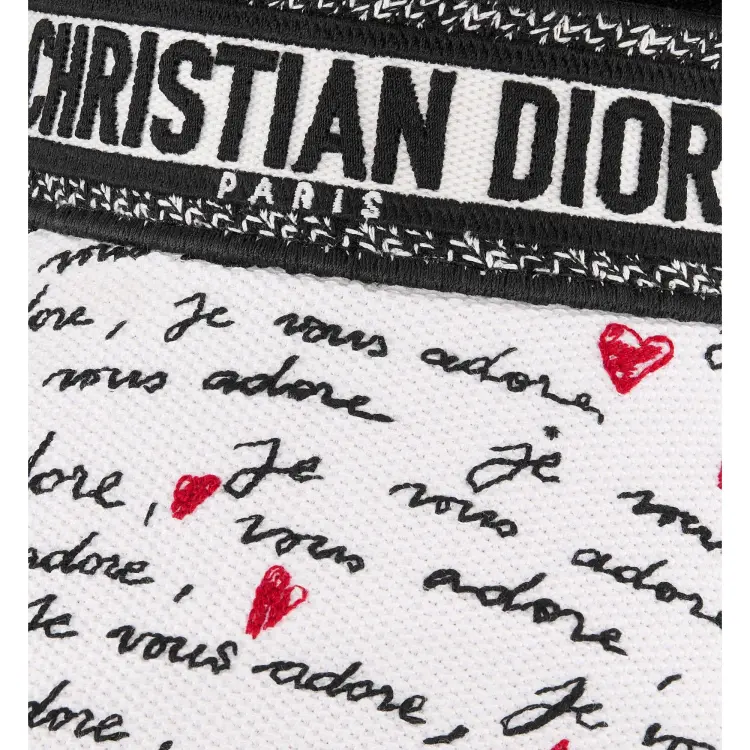 CHRISTIAN DIOR
PARIS
vous
adore, Je vous adore,
vous adore
adore, Je je
vous vous vous
adore, adore, adore
Je vous adore, Je
adore vous